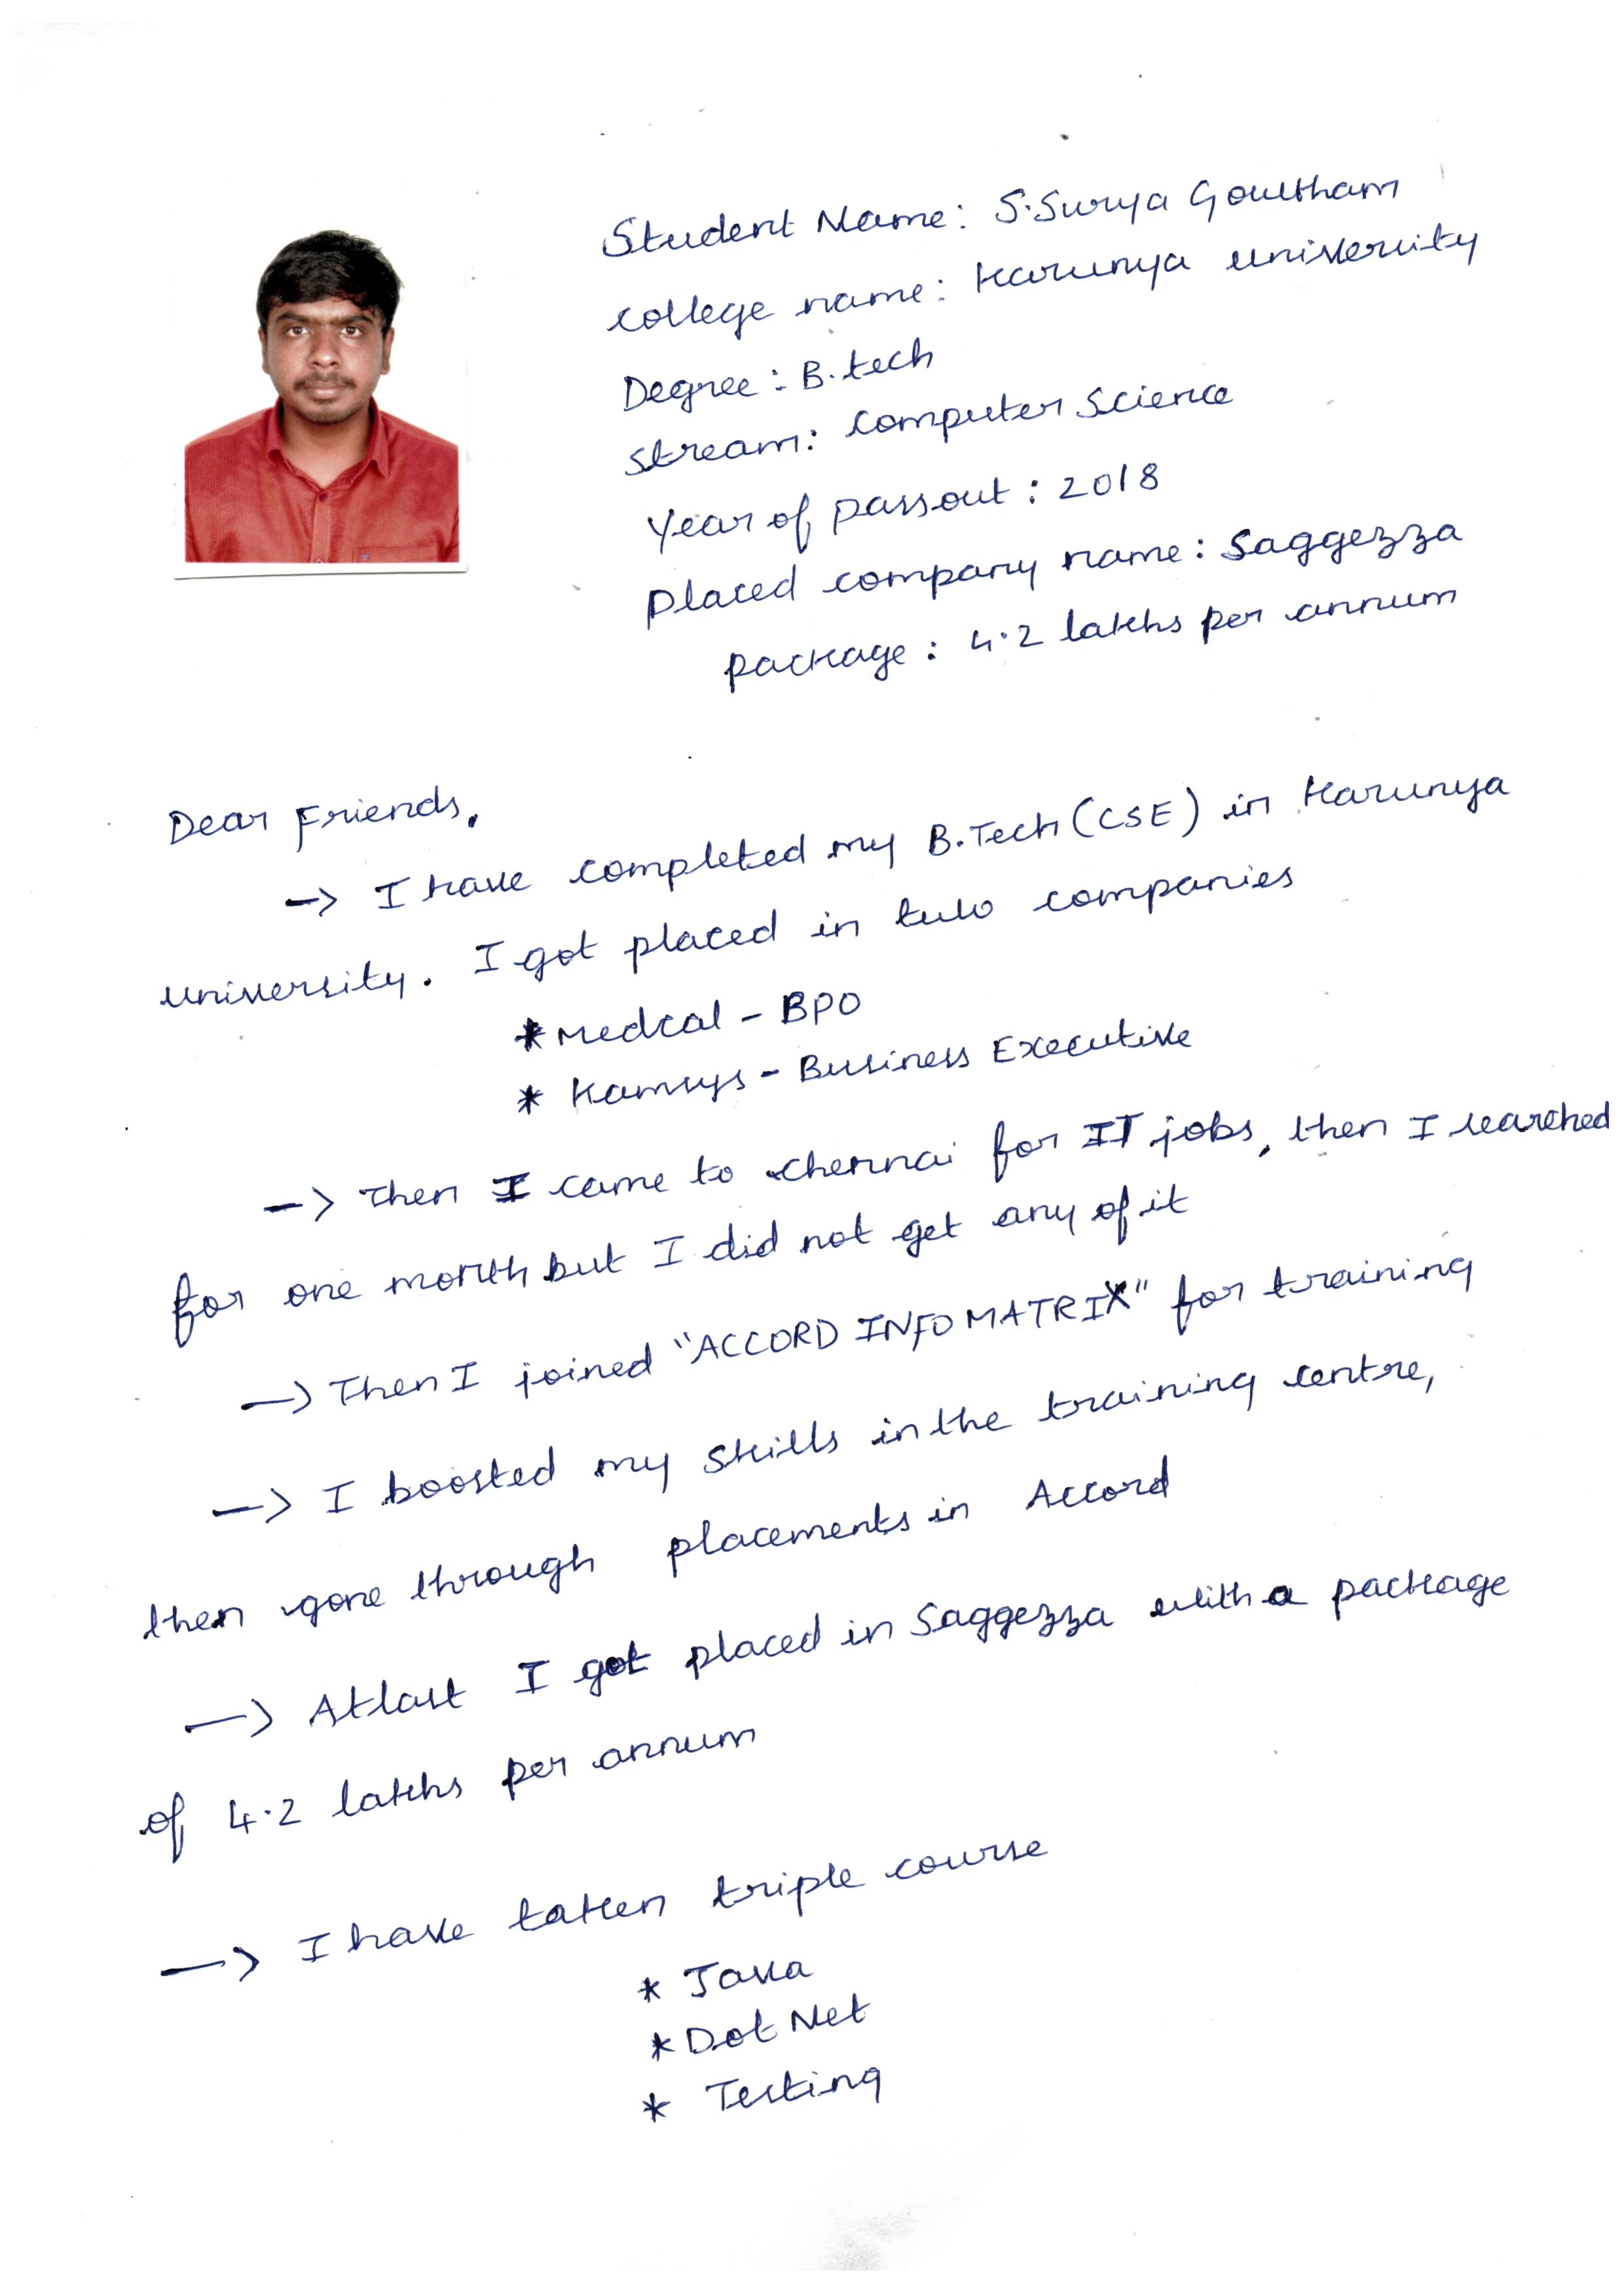 Student Name: S.Surya Goutham
college name: Karunya university
Degree: B.tech
stream: Computer Science
Year of passout: 2018
Placed company name: Saggezza
package: 4.2 lakhs per annum
Dear Friends,
-> I have completed my B.Tech (CSE) in Karunya
university. I got placed in two companies
* Medcal - BPO
* Kamsys - Business Executive
-> Then I came to chennai for IT jobs, then I searched
for one month but I did not get any of it
-> Then I joined "ACCORD INFO MATRIX" for training
-> I boosted my skills in the training centre,
then gone through placements in Accord
-> Atlast I got placed in Saggezza with a package
of 4.2 lakhs per annum
-> I have taken triple course
* Java
* Dot Net
* Testing